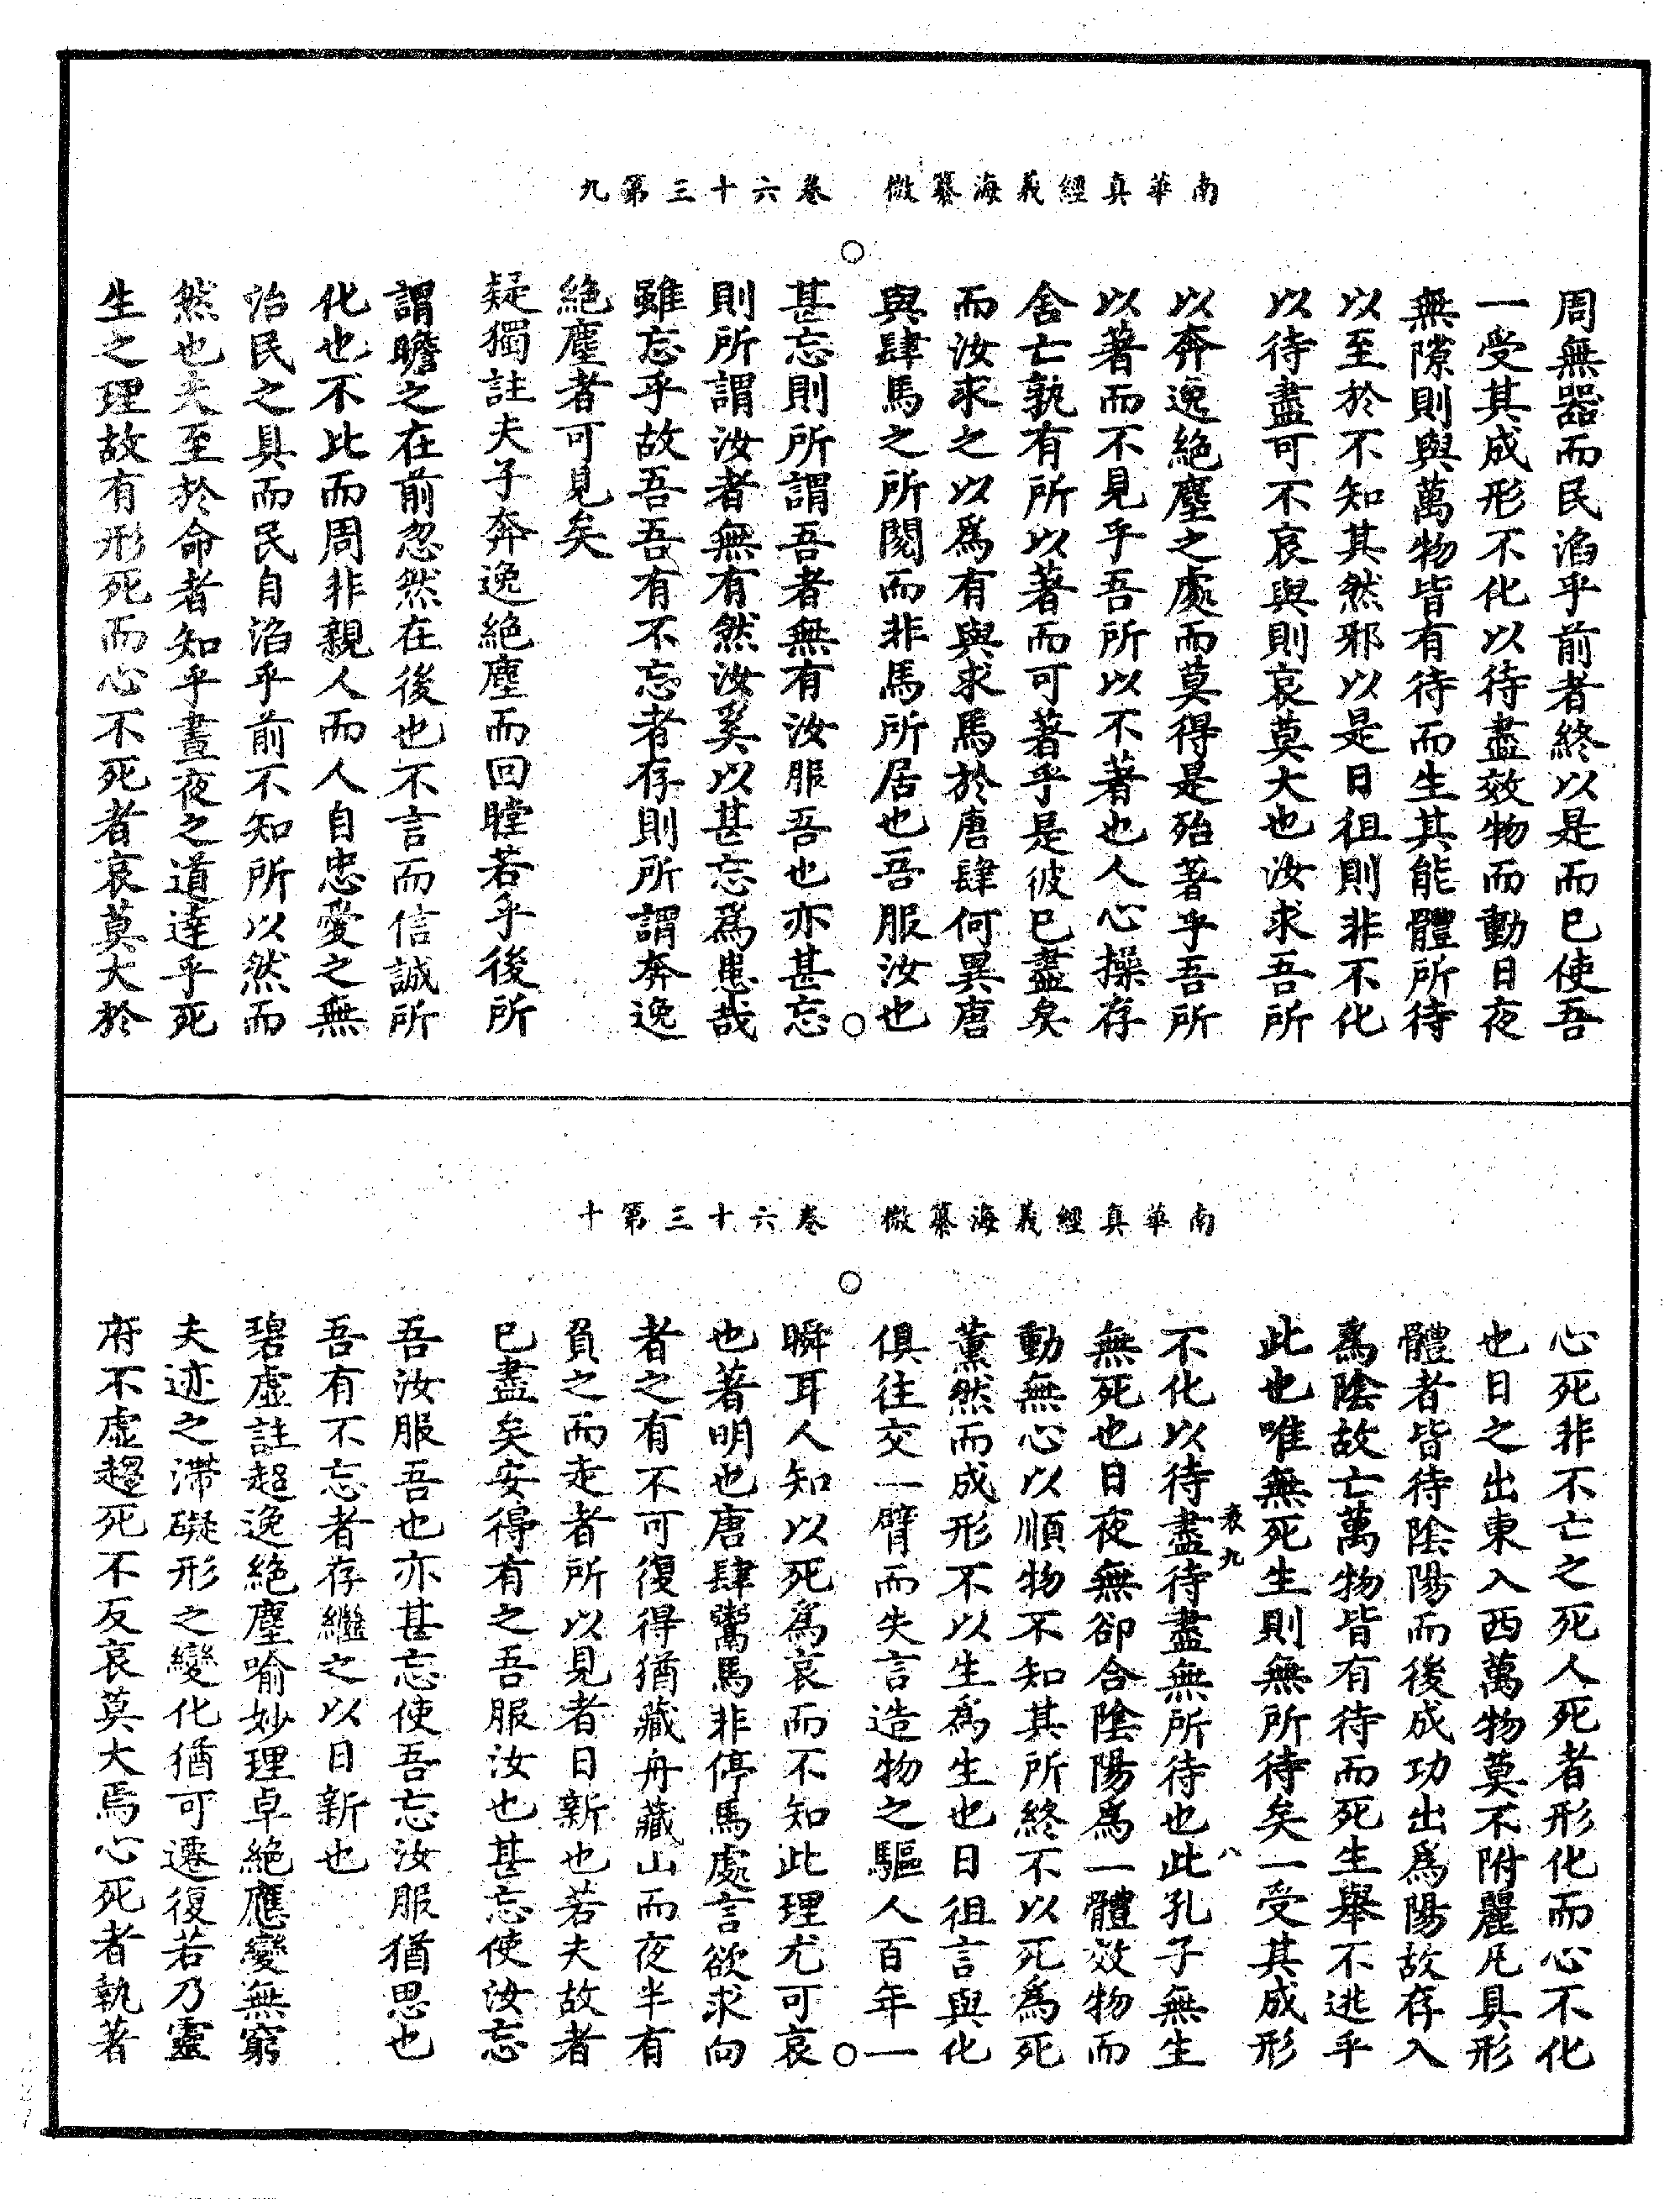 南華真經義海纂微　卷六十三第九
周無器而民滔乎前者終以是而已使吾
一受其成形不化以待盡效物而動日夜
無隙則與萬物皆有待而生其能體所待
以至於不知其然邪以是日徂則非不化
以待盡可不哀與則哀莫大也汝求吾所
以奔逸絕塵之處而莫得是殆著乎吾所
以著而不見乎吾所以不著也人心操存
舍亡孰有所以著而可著乎是彼已盡矣
而汝求之以爲有與求馬於唐肆何異唐
與肆馬之所閱而非馬所居也吾服汝也
甚忘則所謂吾者無有汝服吾也亦甚忘
則所謂汝者無有然汝奚以甚忘爲患哉
雖忘乎故吾吾有不忘者存則所謂奔逸
絕塵者可見矣
疑獨註夫子奔逸絕塵而回瞠若乎後所
謂瞻之在前忽然在後也不言而信誠所
化也不此而周非親人而人自忠愛之無
治民之具而民自滔乎前不知所以然而
然也夫至於命者知乎晝夜之道達乎死
生之理故有形死而心不死者哀莫大於
南華真經義海纂微　卷六十三第十
心死非不亡之死死人死者形化而心不化
也日之出東入西萬物莫不附麗凡具形
體者皆待陰陽而後成功出爲陽故存入
爲陰故亡萬物皆有待而死生舉不逃乎
此也唯無死生則無所待矣一受其成形
表九　八
不化以待盡待盡無所待也此孔子無生
無死也日夜無卻合陰陽爲一體效物而
動無心以順物不知其所終不以死爲死
薰然而成形不以生爲生也日徂言與化
俱往交一臂而失言造物之驅人百年一
瞬耳人知以死爲哀而不知此理尤可哀
也著明也唐肆鬻馬非停馬處言欲求向
者之有不可復得猶藏舟藏山而夜半有
負之而走者所以見者日新也若夫故者
已盡矣安得有之吾服汝也甚忘使汝忘
吾汝服吾也亦甚忘使吾忘汝服猶思也
吾有不忘者存繼之以日新也
碧虛註超逸絕塵喻妙理卓絕應變無窮
夫迹之滯礙形之變化猶可遷復若乃靈
府不虛趨死不反哀莫大焉心死者執著